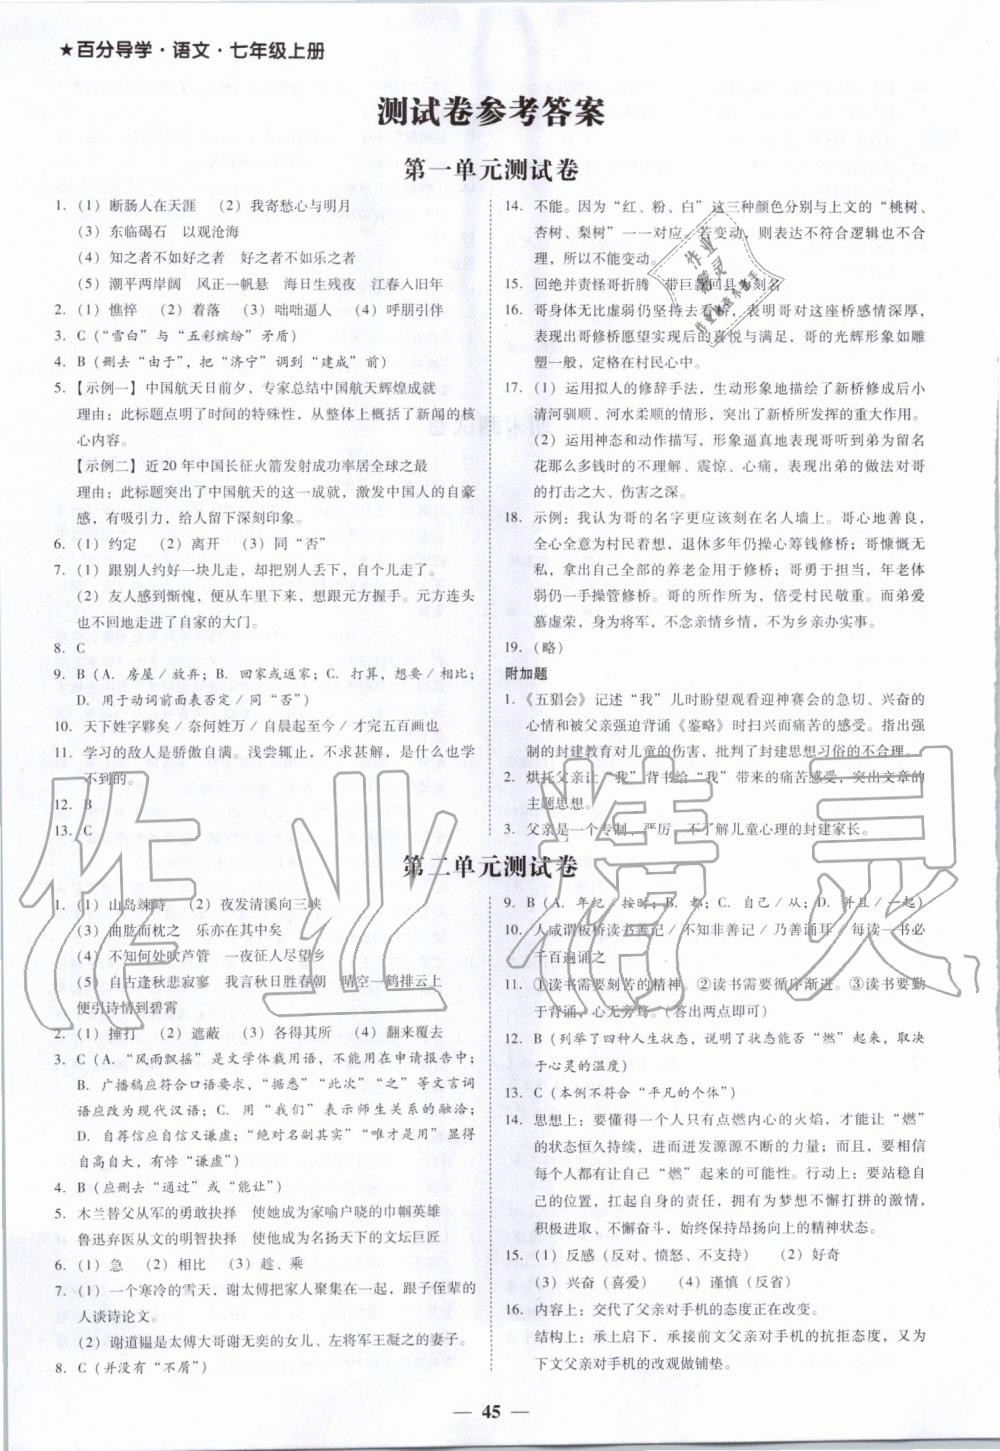 ★百分导学·语文·七年级上册
测试卷参考答案
第一单元测试卷
1. (1) 断肠人在天涯 (2) 我寄愁心与明月
(3) 东临碣石 以观沧海
(4) 知之者不如好之者 好之者不如乐之者
(5) 潮平两岸阔 风正一帆悬 海日生残夜 江春入旧年
2. (1) 憔悴 (2) 着落 (3) 咄咄逼人 (4) 呼朋引伴
3. C(“雪白”与“五彩缤纷”矛盾)
4. B(删去“由于”,把“济宁”调到“建成”前)
5. 【示例一】中国航天日前夕,专家总结中国航天辉煌成就
理由:此标题点明了时间的特殊性,从整体上概括了新闻的核
心内容。
【示例二】近20年中国长征火箭发射成功率居全球之最
理由:此标题突出了中国航天的这一成就,激发中国人的自豪
感,有吸引力,给人留下深刻印象。
6. (1) 约定 (2) 离开 (3) 同“否”
7. (1) 跟别人约好一块儿走,却把别人丢下,自个儿走了。
(2) 友人感到惭愧,便从车里下来,想跟元方握手。元方连头
也不回地走进了自家的大门。
8. C
9. B(A. 房屋/放弃;B. 回家或返家;C. 打算,想要/相比;
D. 用于动词前面表示同“否”)
10. 天下姓字夥矣/奈何姓万/自晨起至今/才完五百画也
11. 学习的敌人是骄傲自满。浅尝辄止,不求甚解,是什么也学
不到的。
12. B
13. C
14. 不能。因为“红、粉、白”这三种颜色分别与上文的“桃树、
杏树、梨树”一一对应。若变动,则表达不符合逻辑也不合
理,所以不能变动。
15. 回绝并责怪哥折腾 带巨款回县为刻名
16. 哥身体无比虚弱仍坚持去看桥,表现哥对这座桥感情深厚。
表现出哥修桥愿望实现后的喜悦与满足,哥的光辉形象如雕
塑一般,定格在村民心中。
17. (1) 运用拟人的修辞手法,生动形象地描绘了新桥修成后小
清河驯顺、河水柔顺的情形,突出了新桥所发挥的重大作用。
(2) 运用神态和动作描写,形象逼真地表现了哥听到弟为留名
花那么多钱时的不理解、震惊、心痛,表现出弟的做法对哥
的打击之大、伤害之深。
18. 示例:我认为哥的名字更应该刻在名人墙上。哥心地善良,
全心全意为村民着想,退休多年仍操心筹钱修桥;哥慷慨无
私,拿出自己全部的养老金用于修桥;哥勇于担当,年老体
弱仍一手操管修桥。哥的所作所为,倍受村民敬重。而弟爱
慕虚荣,身为将军,不念亲情乡情,不为乡亲办实事。
19. (略)
附加题
1. 《五猖会》记述“我”儿时盼望观看迎神赛会的急切、兴奋的
心情和被父亲强迫背诵《鉴略》时扫兴而痛苦的感受。指出强
制的封建教育对儿童的伤害,批判了封建思想习俗的不合理。
2. 烘托父亲让“我”背书给“我”带来的痛苦感受,突出文章的
主题思想。
3. 父亲是一个专制、严厉、不了解儿童心理的封建家长。
第二单元测试卷
1. (1) 山岛竦峙 (2) 夜发清溪向三峡
(3) 曲肱而枕之 乐亦在其中矣
(4) 不知何处吹芦管 一夜征人尽望乡
(5) 自古逢秋悲寂寥 我言秋日胜春朝 晴空一鹤排云上
便引诗情到碧霄
2. (1) 捶打 (2) 遮蔽 (3) 各得其所 (4) 翻来覆去
3. C(A. “风雨飘摇”是文学体裁用语,不能用在申请报告中;
B. 广播稿应符合口语要求,“据悉”“此次”“之”等文言词
语应改为现代汉语;C. 用“我们”表示师生关系的融洽;
D. 自荐信应自信又谦虚;“绝对名副其实”“唯才是用”显得
自高自大,有悖“谦虚”)
4. B(应删去“通过”或“能让”)
5. 木兰替父从军的勇敢抉择 使她成为家喻户晓的巾帼英雄
鲁迅弃医从文的明智抉择 使他成为名扬天下的文坛巨匠
6. (1) 急 (2) 相比 (3) 趁、乘
7. (1) 一个寒冷的雪天,谢太傅把家人聚集在一起,跟子侄辈的
人谈诗论文。
(2) 谢道韫是太傅大哥谢无奕的女儿、左将军王凝之的妻子。
8. C(并没有“不屑”)
9. B(A. 年纪/按时;B. 都;C. 自己/从;D. 并且/一起)
10. 人咸谓板桥读书善记/不知非善记/乃善诵耳/每读一书必
千百遍诵之
11. ①读书需要刻苦的精神。②读书需要循序渐进。③读书要勤
于背诵、心无旁骛。(答出两点即可)
12. B(列举了四种人生状态,说明了状态能否“燃”起来,取决
于心灵的温度)
13. C(本例不符合“平凡的个体”)
14. 思想上:要懂得一个人只有点燃内心的火焰,才能让“燃”
的状态恒久持续,进而迸发源源不断的力量;而且,要相信
每个人都有让自己“燃”起来的可能性。行动上:要站稳自
己的位置,扛起自身的责任,拥有为梦想不懈打拼的激情,
积极进取、不懈奋斗,始终保持昂扬向上的精神状态。
15. (1) 反感(反对、愤怒、不支持) (2) 好奇
(3) 兴奋(喜爱) (4) 谨慎(反省)
16. 内容上:交代了父亲对手机的态度正在改变。
结构上:承上启下,承接前文父亲对手机的抗拒态度,又为
下文父亲对手机的改观做铺垫。
— 45 —
作业精灵